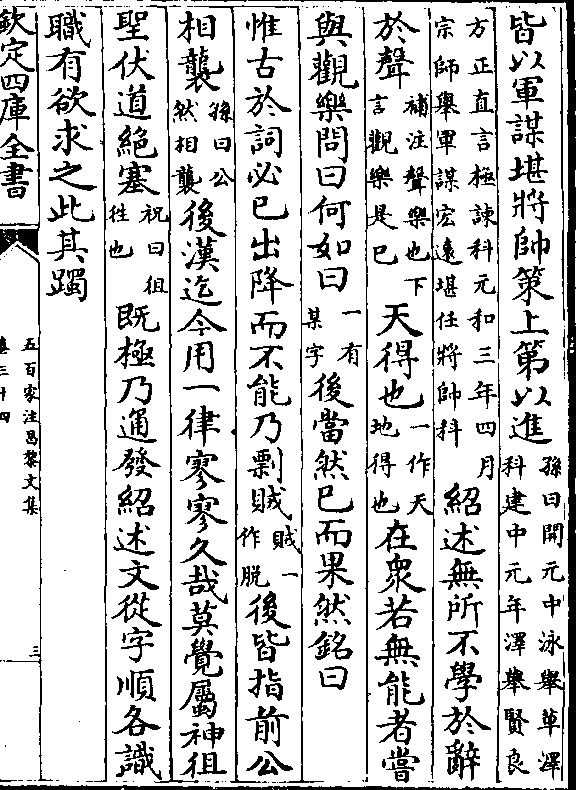 皆以軍謀堪將帥策上第以進孫曰開元中泳舉草澤科建中元年澤舉賢良
方正直言極諫科元和三年四月宗師舉軍謀宏遠堪任將帥科紹述無所不學於辭
於聲補注聲樂也下言觀樂是已天得也一作天地得也在衆若無能者嘗
與觀樂問曰何如曰一有某字後當然已而果然銘曰
惟古於詞必已出降而不能乃剽賊賊一作脱後皆指前公
相襲孫曰公然相襲後漢迄今用一律寥寥久哉莫覺屬神徂
聖伏道絶塞祝曰徂徃也既極乃通發紹述文從字順各識
職有欲求之此其躅
欽定四庫全書
五百家注昌黎文集
卷三十四
三